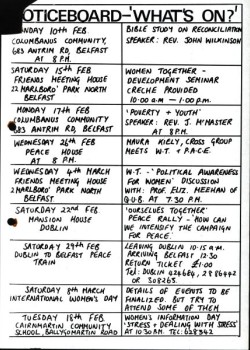 NOTICEBOARD-'WHAT'S ON?'
MONDAY 10TH FEB
COLUMBANUS COMMUNITY,
683 ANTRIM RD, BELFAST
AT 8 P.M.
BIBLE STUDY ON RECONCILIATION
SPEAKER: REV. JOHN WILKINSON
SATURDAY 15TH FEB
FRIENDS MEETING HOUSE
22 MARLBORO' PARK NORTH
BELFAST
WOMEN TOGETHER -
DEVELOPMENT SEMINAR
CRECHE PROVIDED
10.00 A.M - 1.00 P.M.
MONDAY 17TH FEB
COLUMBANUS COMMUNITY
683 ANTRIM RD, BELFAST
'POVERTY & YOUTH'
SPEAKER: REV. J. MCMASTER
AT 8 P.M.
WEDNESDAY 26TH FEB
PEACE HOUSE
AT 8 P.M.
MAURA KIELY, CROSS GROUP
MEETS W.T. & P.A.C.E.
WEDNESDAY 4TH MARCH
FRIENDS MEETING HOUSE
22 MARLBORO' PARK NORTH
BELFAST.
W.T. - 'POLITICAL AWARENESS
FOR WOMEN' DISCUSSION
WITH: PROF. ELIZ. MEEHAN OF
Q.U.B. AT 7.30 P.M.
SATURDAY 22ND FEB.
MANSION HOUSE
DUBLIN
'OURSELVES TOGETHER'
PEACE RALLY - 'HOW CAN
WE INTENSIFY THE CAMPAIGN
FOR PEACE.'
SATURDAY 29TH FEB
DUBLIN TO BELFAST PEACE
TRAIN
LEAVING DUBLIN 10.15 A.M.
ARRIVING BELFAST 12.30
RETURN TICKET £9.00
Tel: DUBLIN
OR 308265.
SATURDAY 8TH MARCH
INTERNATIONAL WOMEN'S DAY
DETAILS OF EVENTS TO BE
FINALIZED. BUT TRY TO
ATTEND SOME OF THEM
TUESDAY 18TH FEB
CAIRNMARTIN COMMUNITY
SCHOOL, BALLYGOMARTIN ROAD
WOMEN'S INFORMATION DAY
'STRESS & DEALING WITH STRESS'
AT 10.30 AM. TEL: 628342